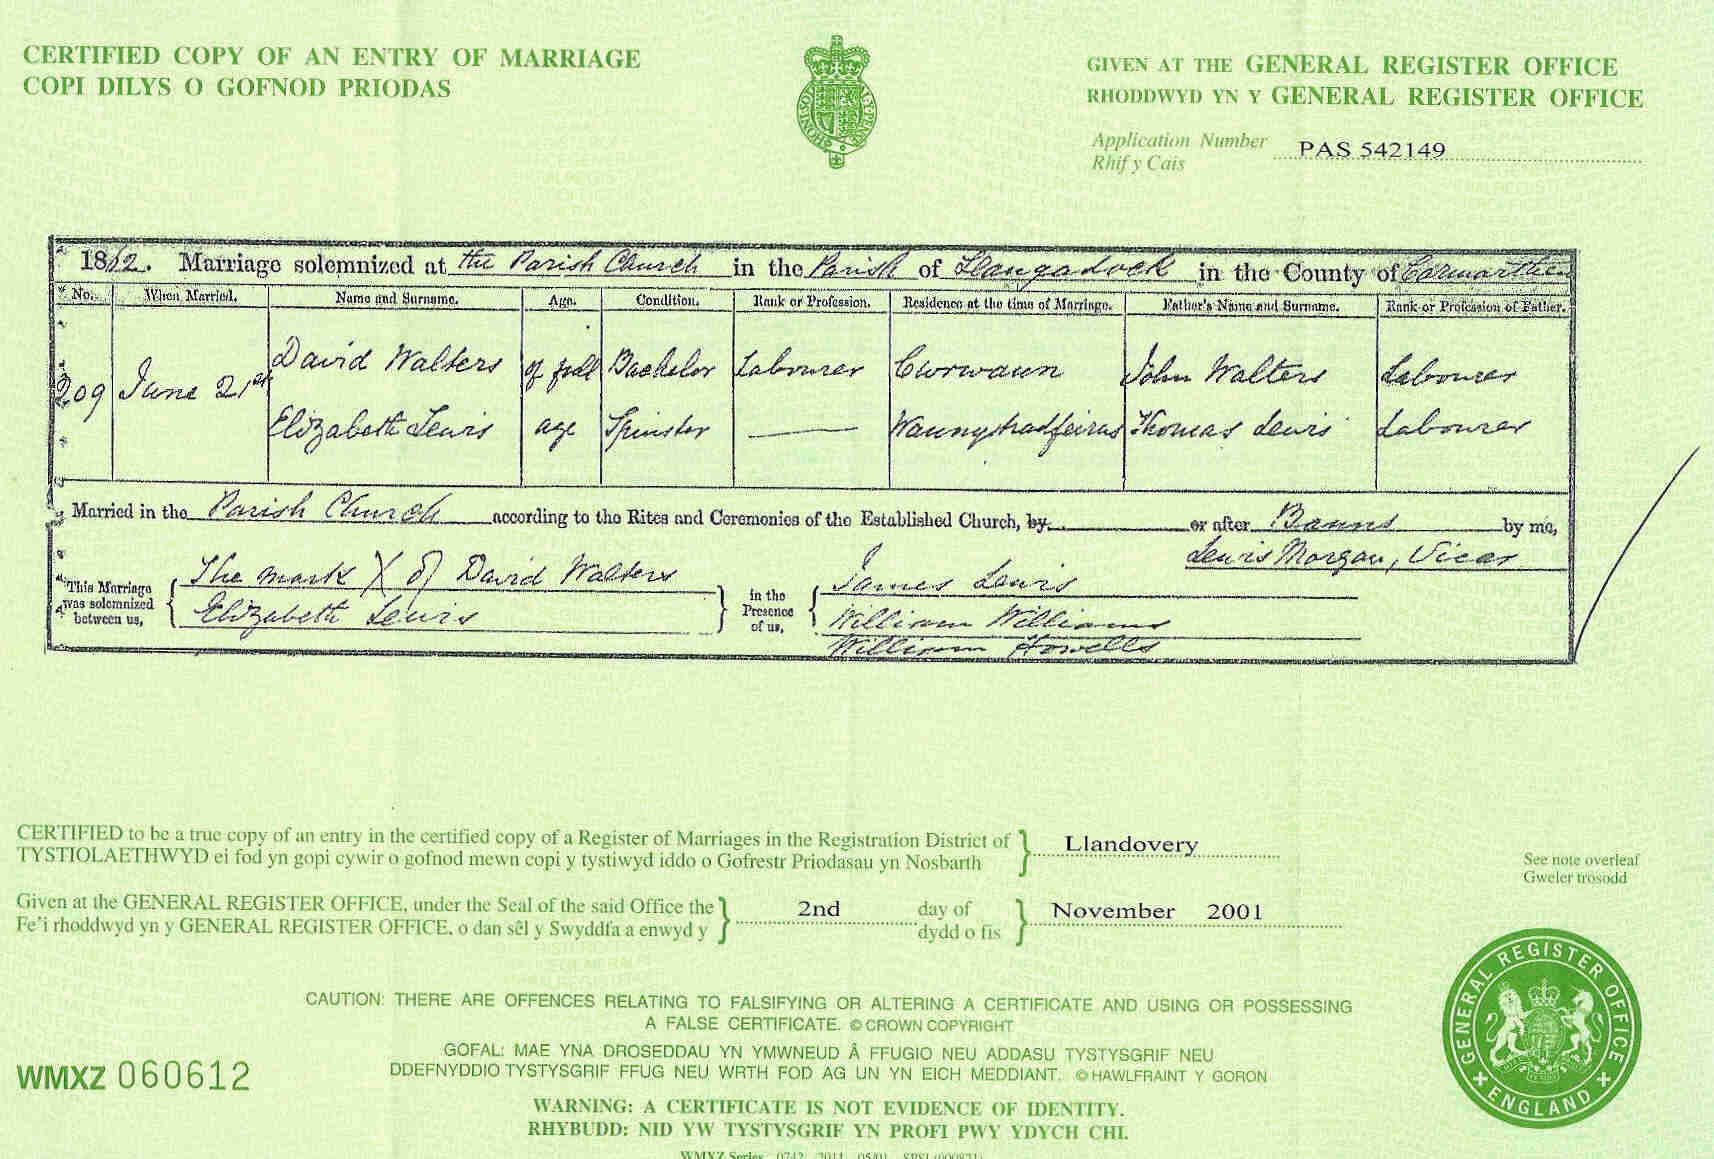 CERTIFIED COPY OF AN ENTRY OF MARRIAGE
COPI DILYS O GOFNOD PRIODAS
GIVEN AT THE GENERAL REGISTER OFFICE
RHODDWYD YN Y GENERAL REGISTER OFFICE
Application Number PAS 542149
Rhif y Cais
1862. Marriage solemnized at the Parish Church in the Parish of Llangadock in the County of Carmarthen
No. When Married. Name and Surname. Age. Condition. Rank or Profession. Residence at the time of Marriage. Father's Name and Surname. Rank or Profession of Father.
209 June 21st David Walters of full Bachelor Labourer John Walters Labourer
Elizabeth Lewis age Spinster Thomas Lewis Labourer
Married in the Parish Church according to the Rites and Ceremonies of the Established Church, by or after Banns by me,
Lewis Morgan, Vicar
This Marriage was solemnized between us,
The mark X of David Walters
Elizabeth Lewis
in the Presence of us,
James Lewis
William Williams
William Howells
CERTIFIED to be a true copy of an entry in the certified copy of a Register of Marriages in the Registration District of Llandovery
TYSTIOLAETHWYD ei fod yn gopi cywir o gofnod mewn copi y tystiwyd iddo o Gofrestr Priodasau yn Nosbarth
See note overleaf
Gweler trosodd
Given at the GENERAL REGISTER OFFICE, under the Seal of the said Office the 2nd day of November 2001
Fe'i rhoddwyd yn y GENERAL REGISTER OFFICE, o dan sêl y Swyddfa a enwyd y dydd o fis
CAUTION: THERE ARE OFFENCES RELATING TO FALSIFYING OR ALTERING A CERTIFICATE AND USING OR POSSESSING
A FALSE CERTIFICATE. © CROWN COPYRIGHT
GOFAL: MAE YNA DROSEDDAU YN YMWNEUD Â FFUGIO NEU ADDASU TYSTYSGRIF NEU
DDEFNYDDIO TYSTYSGRIF FFUG NEU WRTH FOD AG UN YN EICH MEDDIANT. © HAWLFRAINT Y GORON
WMXZ 060612
WARNING: A CERTIFICATE IS NOT EVIDENCE OF IDENTITY.
RHYBUDD: NID YW TYSTYSGRIF YN PROFI PWY YDYCH CHI.
GENERAL REGISTER OFFICE
ENGLAND
WMXZ Series